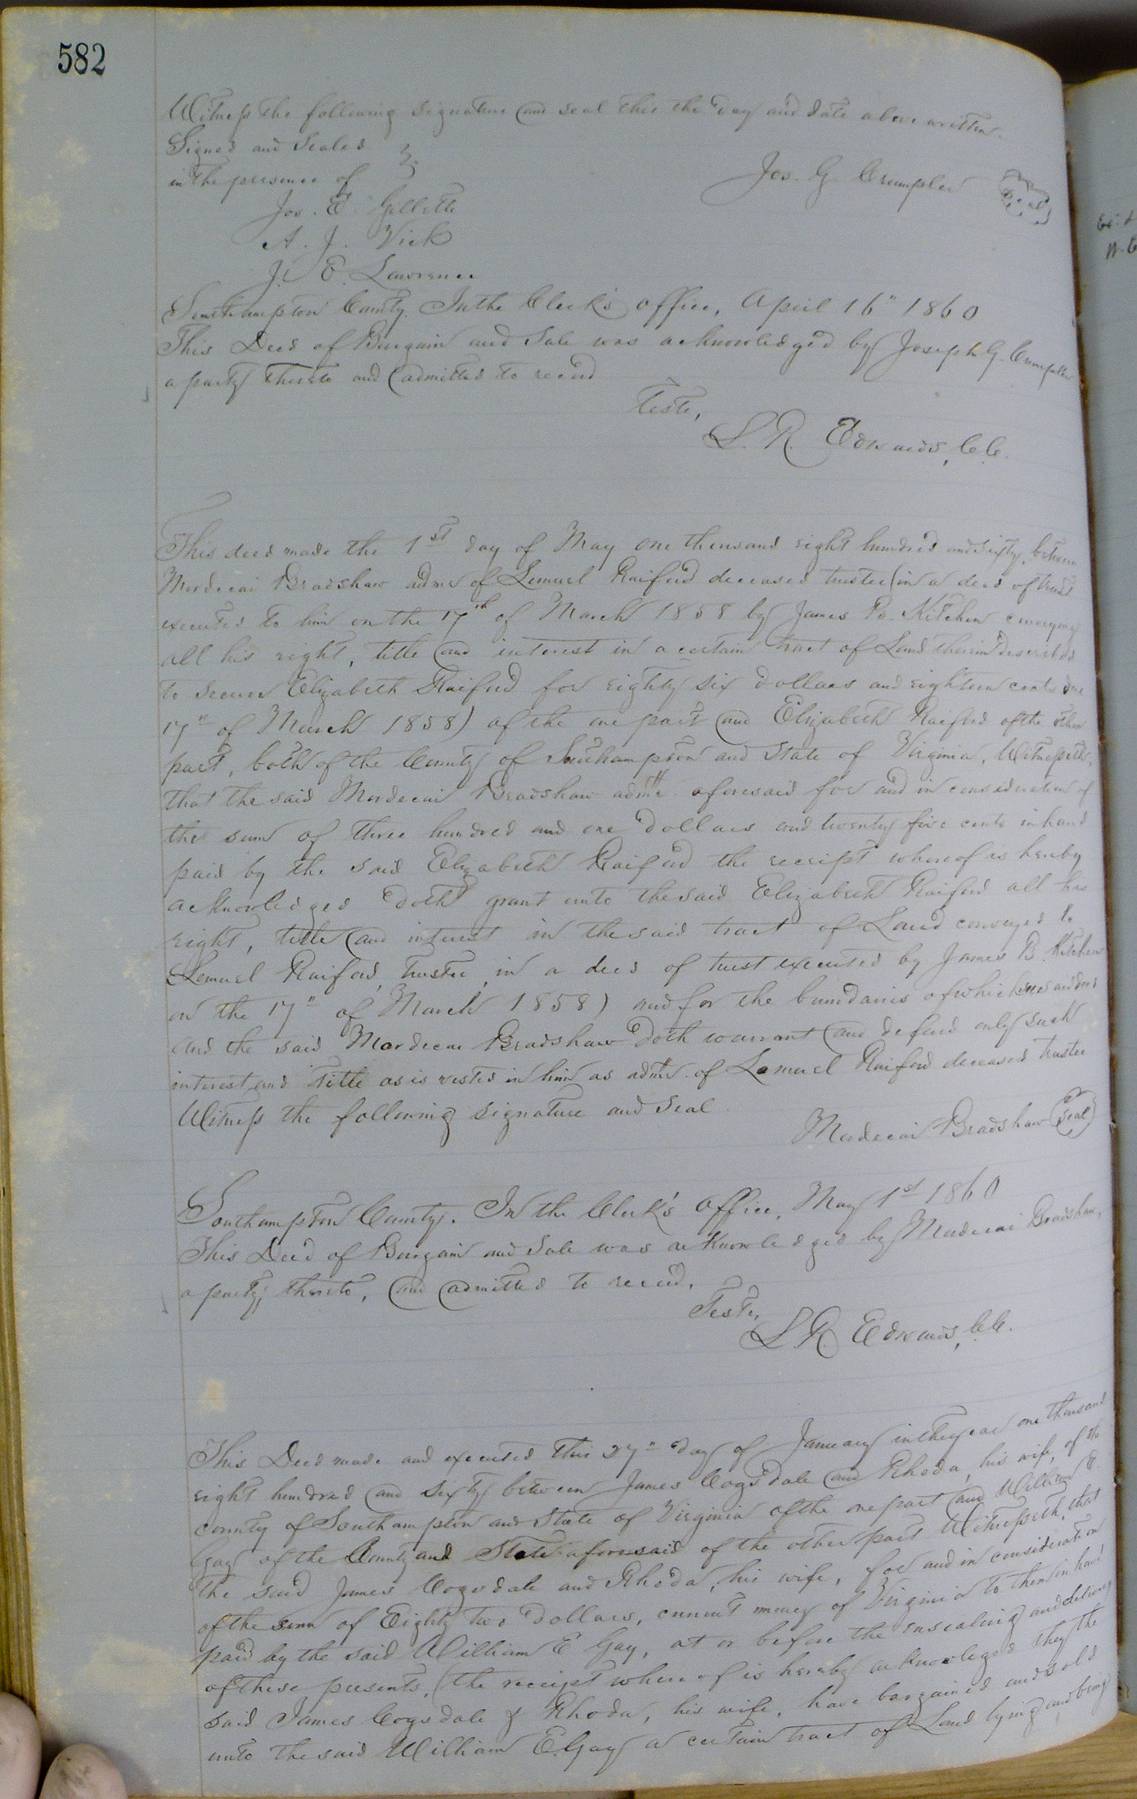 582
Witness the following signature and seal this the day and date above written.
Signed and Sealed
in the presence of
Jos. G. Crumpler Seal
Jos. E. Gillette
A. J. Vick
J. E. Lawrence
Southampton County. In the Clerk's office, April 16" 1860
This Deed of Bargain and Sale was acknowledged by Joseph G. Crumpler
a party thereto and admitted to record
Teste,
L. R. Edwards, C.C.
This deed made the 1st day of May one thousand eight hundred and sixty, between
Mordecai Bradshaw admr of Lemuel Raiford deceased trustee (in a deed of trust
executed to him on the 17th of March 1858 by James B. Kitchen conveying
all his right, title and interest in a certain tract of Land therein described
to secure Elizabeth Raiford for eighty six dollars and eighteen cents due
17" of March 1858) of the one part and Elizabeth Raiford of the other
part, both of the County of Southampton and State of Virginia, Witnesseth,
that the said Mordecai Bradshaw admr aforesaid for and in consideration of
the sum of three hundred and one Dollars and twenty five cents in hand
paid by the said Elizabeth Raiford the receipt whereof is hereby
acknowledged doth grant unto the said Elizabeth Raiford all his
right, title and interest in the said tract of Land conveyed to
Lemuel Raiford, Trustee, in a deed of trust executed by James B. Kitchen
on the 17" of March 1858) and for the boundaries of which
and the said Mordecai Bradshaw doth warrant and defend only such
interest and title as is vested in him as admr. of Lemuel Raiford deceased trustee
Witness the following signature and seal
Mordecai Bradshaw Seal
Southampton County. In the Clerk's office, May 1st 1860
This Deed of Bargain and Sale was acknowledged by Mordecai Bradshaw,
a party thereto, and admitted to record.
Teste,
L. R. Edwards, C.C.
This Deed made and executed this 27th day of January in the year one thousand
eight hundred and sixty between James Cogsdale and Rhoda, his wife, of the
county of Southampton and State of Virginia of the one part and William E.
Gay of the County and State aforesaid of the other part Witnesseth, that
the said James Cogsdale and Rhoda, his wife, for and in consideration
of the sum of Eighty two Dollars, current money of Virginia to them in hand
paid by the said William E Gay, at or before the ensealing and delivery
of these presents, (the receipt whereof is hereby acknowledged they the
said James Cogsdale & Rhoda, his wife, have bargained and sold
unto the said William E. Gay a certain tract of Land lying and being